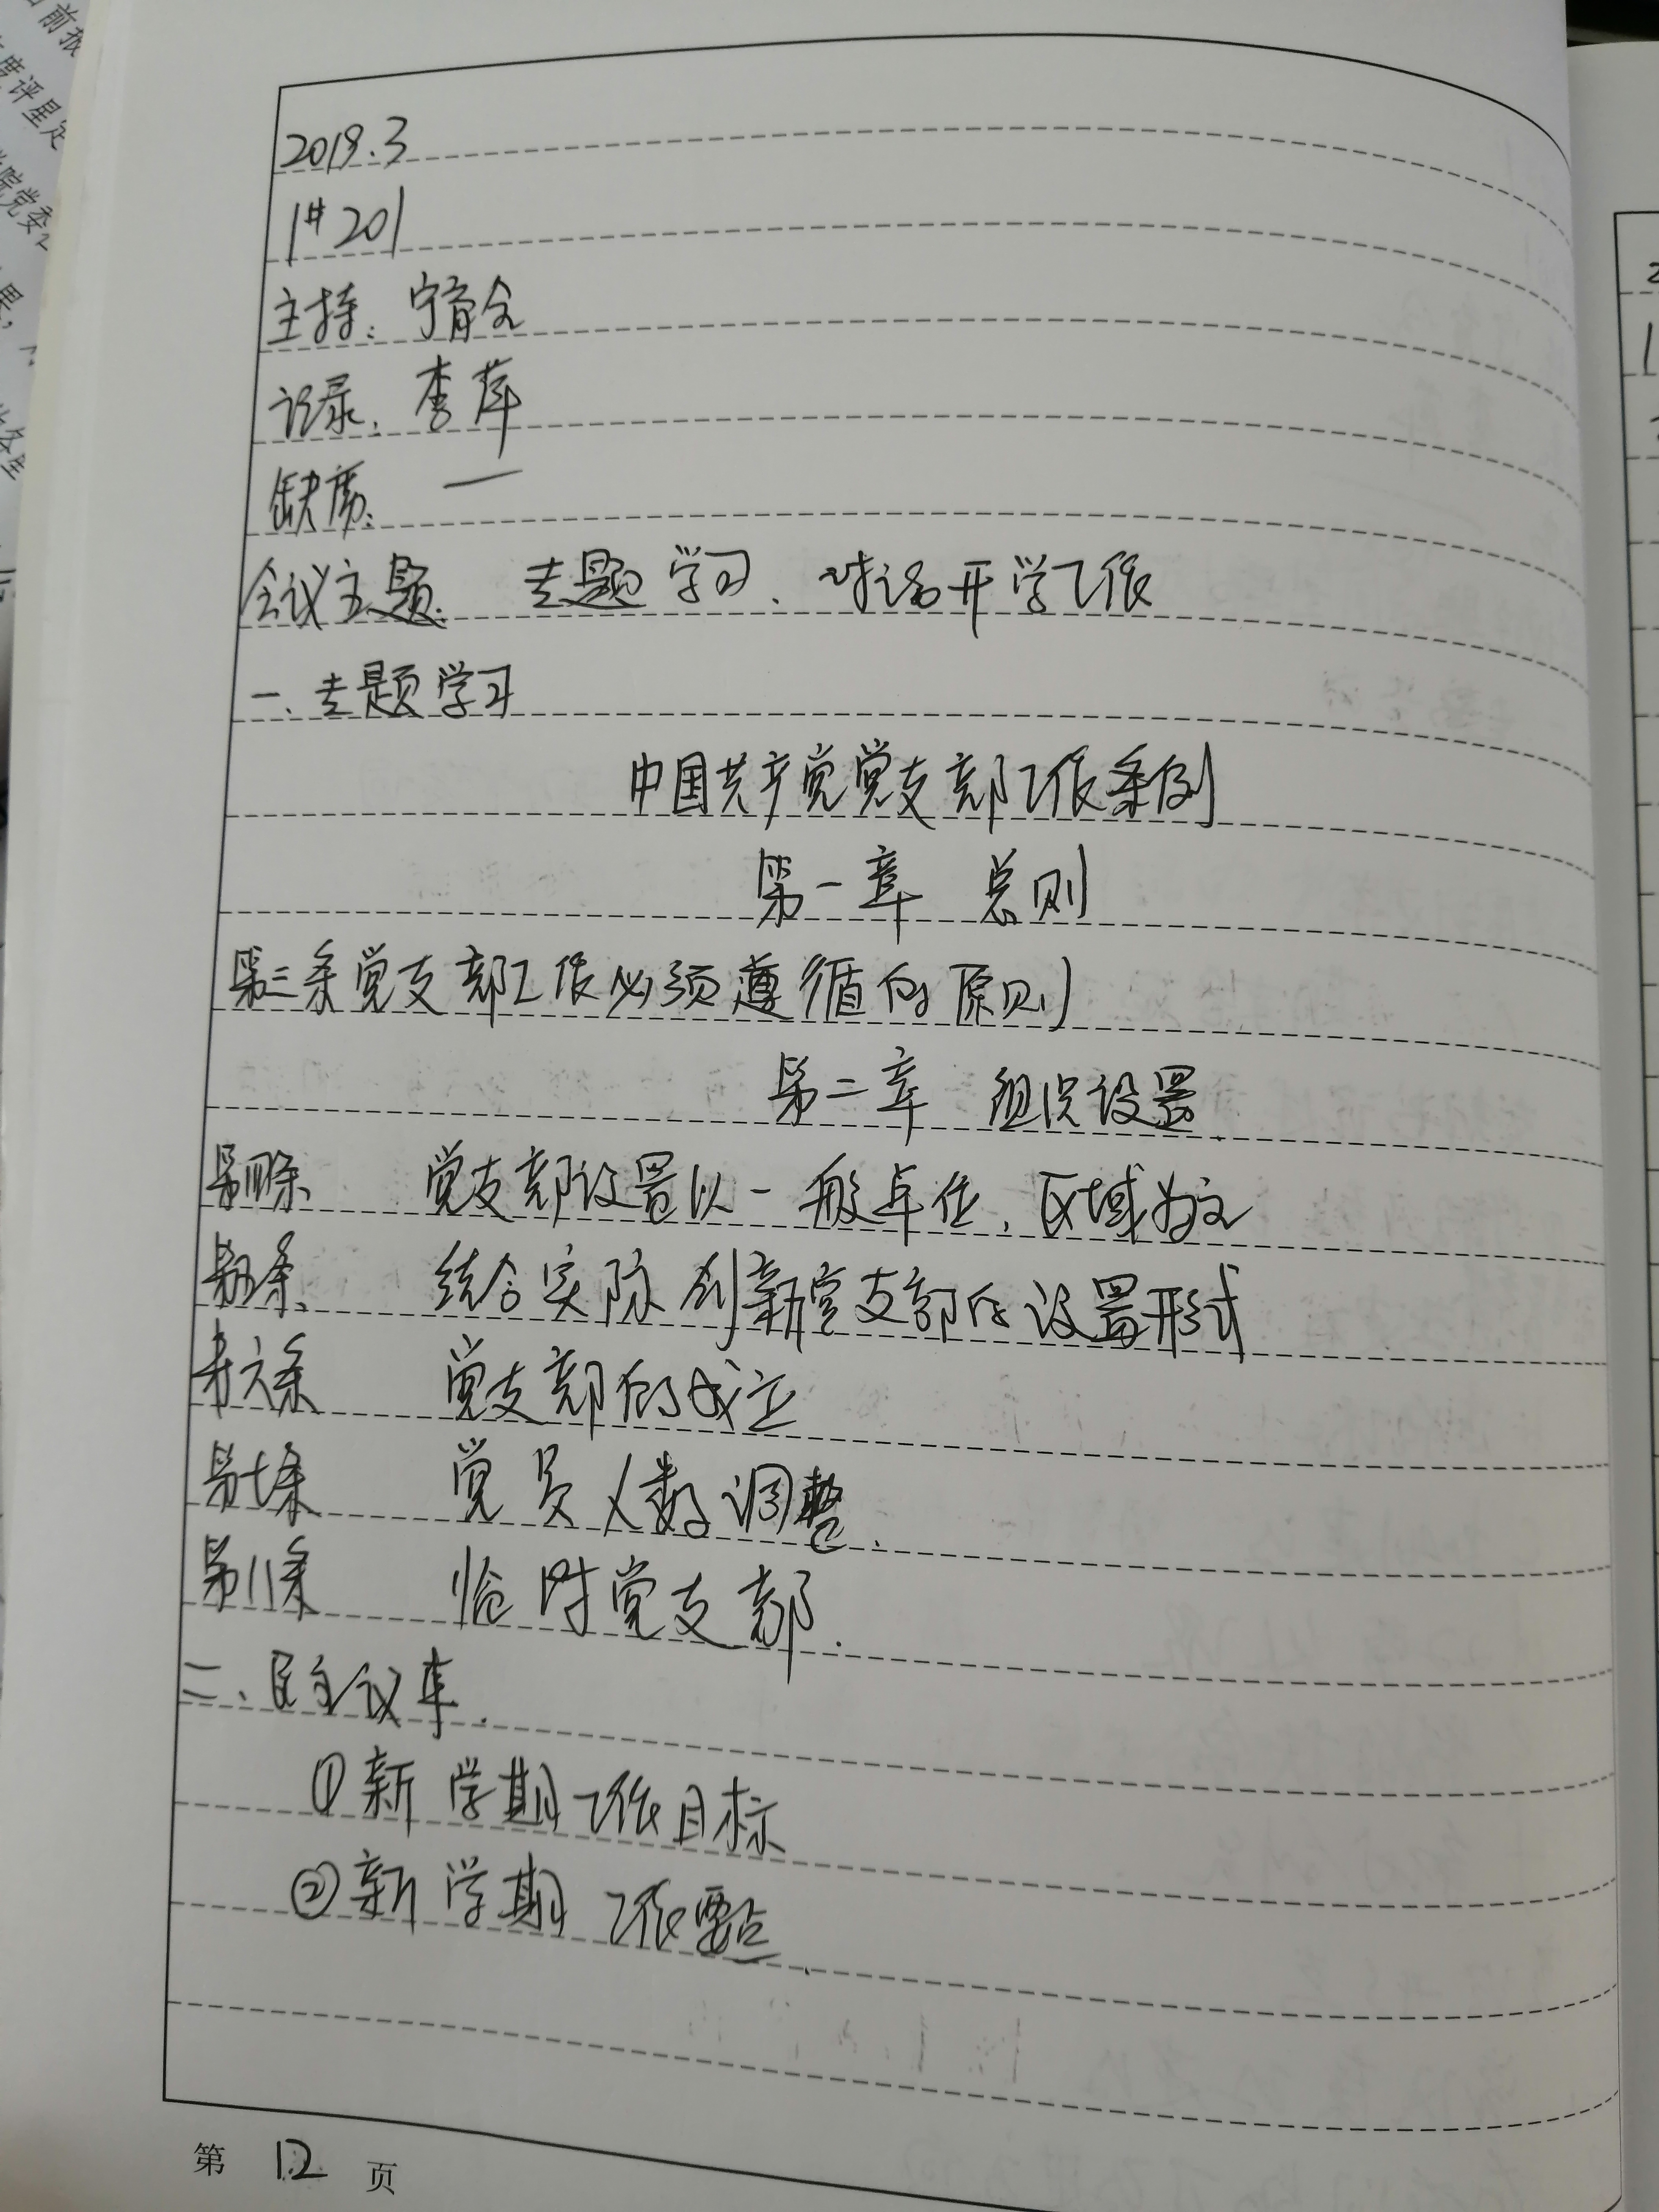 2019.3
1#201
主持：宁育仝
记录：李萍
缺席：一
会议主题：专题学习、讨论开学工作
一、专题学习
中国共产党党支部工作条例
第一章 总则
第三条党支部工作必须遵循的原则
第二章 组织设置
第四条、 党支部设置以一般单位、区域为主
第五条、 结合实际创新党支部的设置形式
第六条 党支部的成立
第七条 党员人数调整.
第八条 临时党支部.
二、民主议事.
①新学期工作目标
②新学期工作要点.
第 12 页